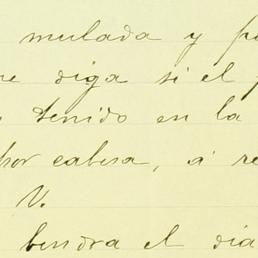 mulada y
diga si el
tenido en la
por cabesa, á
V.
bendra el dia